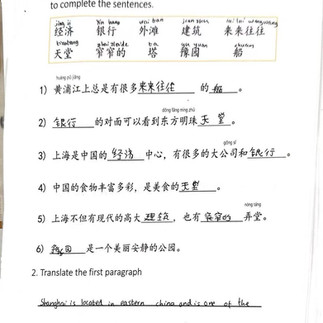 to complete the sentences.
经济 银行 外滩 建筑 来来往往
天堂 窄窄的 塔 豫园 船
huáng pǔ jiāng
1) 黄浦江上总是有很多来来往往 的 船 。
dōng fāng míng zhū
2) 银行 的对面可以看到东方明珠 天堂 。
gōng sī
3) 上海是中国的 经济 中心，有很多的大公司和银行 。
4) 中国的食物丰富多彩，是美食的天堂 。
nòng táng
5) 上海不但有现代的高大 建筑 ，也有窄窄的 弄堂。
6) 豫园 是一个美丽安静的公园。
2. Translate the first paragraph
Shanghai is located in eastern china and is one of the